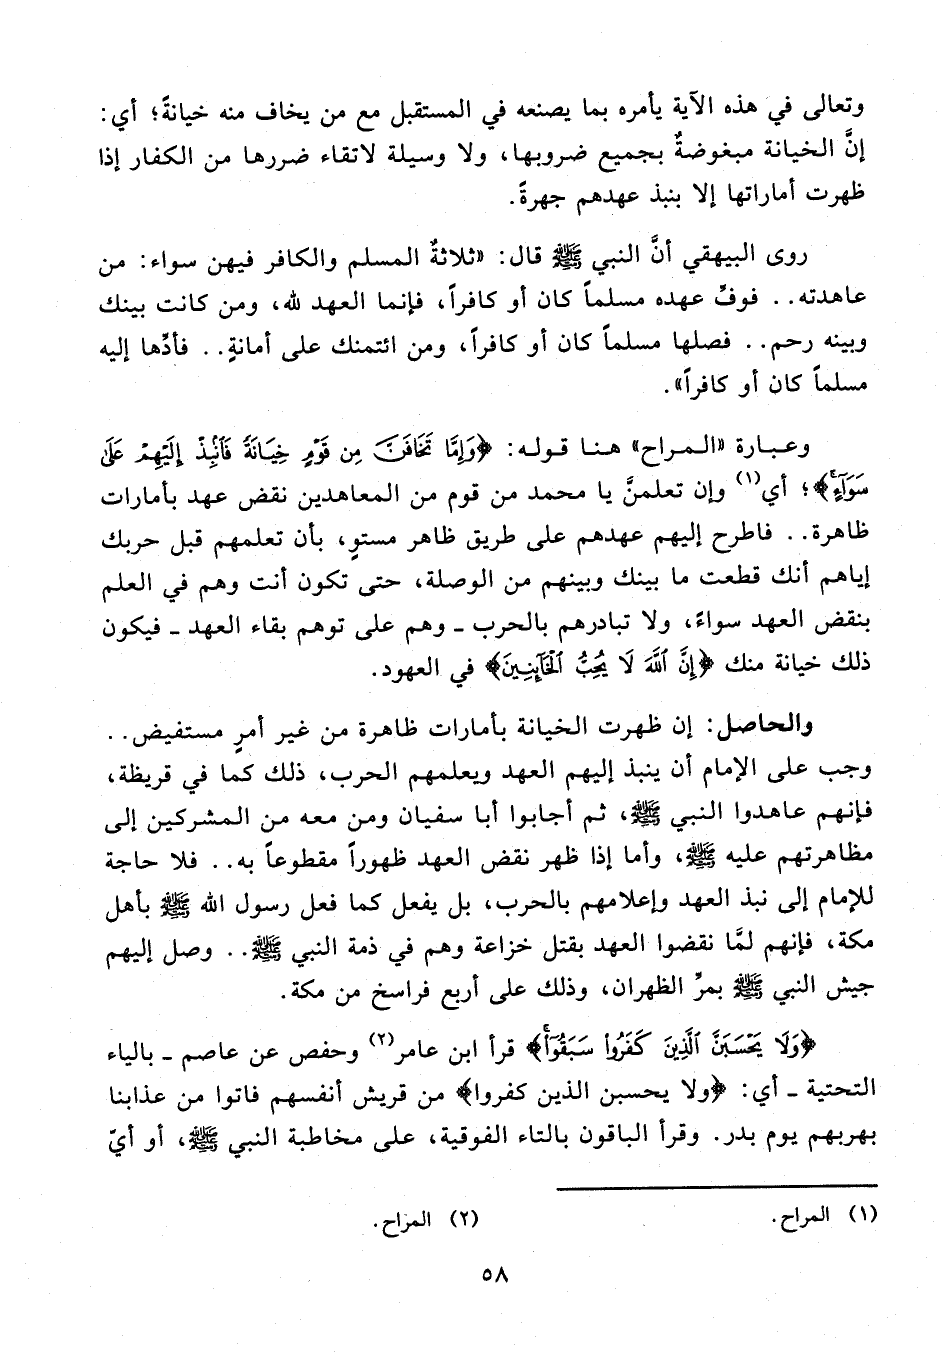 وتعالى في هذه الآية يأمره بما يصنعه في المستقبل مع من يخاف منه خيانةً؛ أي:
إنَّ الخيانة مبغوضةٌ بجميع ضروبها، ولا وسيلة لاتقاء ضررها من الكفار إذا
ظهرت أماراتها إلا بنبذ عهدهم جهرةً.
روى البيهقي أنَّ النبي ﷺ قال: «ثلاثةٌ المسلم والكافر فيهن سواء: من
عاهدته.. فوفِّ عهده مسلماً كان أو كافراً، فإنما العهد لله، ومن كانت بينك
وبينه رحم.. فصلها مسلماً كان أو كافراً، ومن ائتمنك على أمانةٍ.. فأدِّها إليه
مسلماً كان أو كافراً».
وعبارة «المراح» هنا قوله: ﴿وَإِمَّا تَخَافَنَّ مِن قَوْمٍ خِيَانَةً فَٱنۢبِذْ إِلَيْهِمْ عَلَىٰ
سَوَآءٍ﴾؛ أي(١) وإن تعلمنَّ يا محمد من قوم من المعاهدين نقض عهد بأمارات
ظاهرة.. فاطرح إليهم عهدهم على طريق ظاهر مستوٍ، بأن تعلمهم قبل حربك
إياهم أنك قطعت ما بينك وبينهم من الوصلة، حتى تكون أنت وهم في العلم
بنقض العهد سواءً، ولا تبادرهم بالحرب ـ وهم على توهم بقاء العهد ـ فيكون
ذلك خيانة منك ﴿إِنَّ ٱللَّهَ لَا يُحِبُّ ٱلْخَآئِنِينَ﴾ في العهود.
والحاصل: إن ظهرت الخيانة بأمارات ظاهرة من غير أمرٍ مستفيض..
وجب على الإمام أن ينبذ إليهم العهد ويعلمهم الحرب، ذلك كما في قريظة،
فإنهم عاهدوا النبي ﷺ، ثم أجابوا أبا سفيان ومن معه من المشركين إلى
مظاهرتهم عليه ﷺ، وأما إذا ظهر نقض العهد ظهوراً مقطوعاً به.. فلا حاجة
للإمام إلى نبذ العهد وإعلامهم بالحرب، بل يفعل كما فعل رسول الله ﷺ بأهل
مكة، فإنهم لمَّا نقضوا العهد بقتل خزاعة وهم في ذمة النبي ﷺ.. وصل إليهم
جيش النبي ﷺ بمرِّ الظهران، وذلك على أربع فراسخ من مكة.
﴿وَلَا يَحْسَبَنَّ ٱلَّذِينَ كَفَرُوا۟ سَبَقُوٓا۟ۚ﴾ قرأ ابن عامر(٢) وحفص عن عاصم ـ بالياء
التحتية ـ أي: ﴿ولا يحسبن الذين كفروا﴾ من قريش أنفسهم فاتوا من عذابنا
بهربهم يوم بدر. وقرأ الباقون بالتاء الفوقية، على مخاطبة النبي ﷺ، أو أيّ
(١) المراح. (٢) المراح.
٥٨